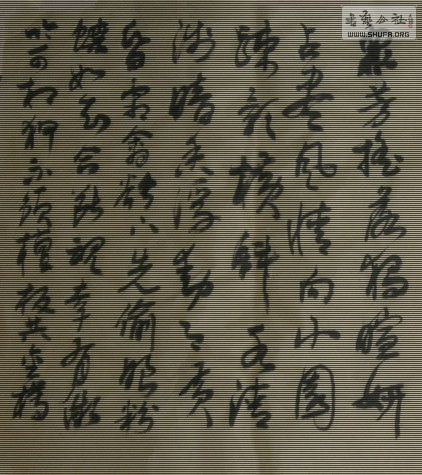 眾芳搖落獨暄妍
占盡風情向小園
疎影橫斜水清
淺暗香浮動月黃
昏霜禽欲下先偷眼粉
蝶如知合斷魂幸有微
吟可相狎不須檀板共金樽
WWW.SHUFA.ORG